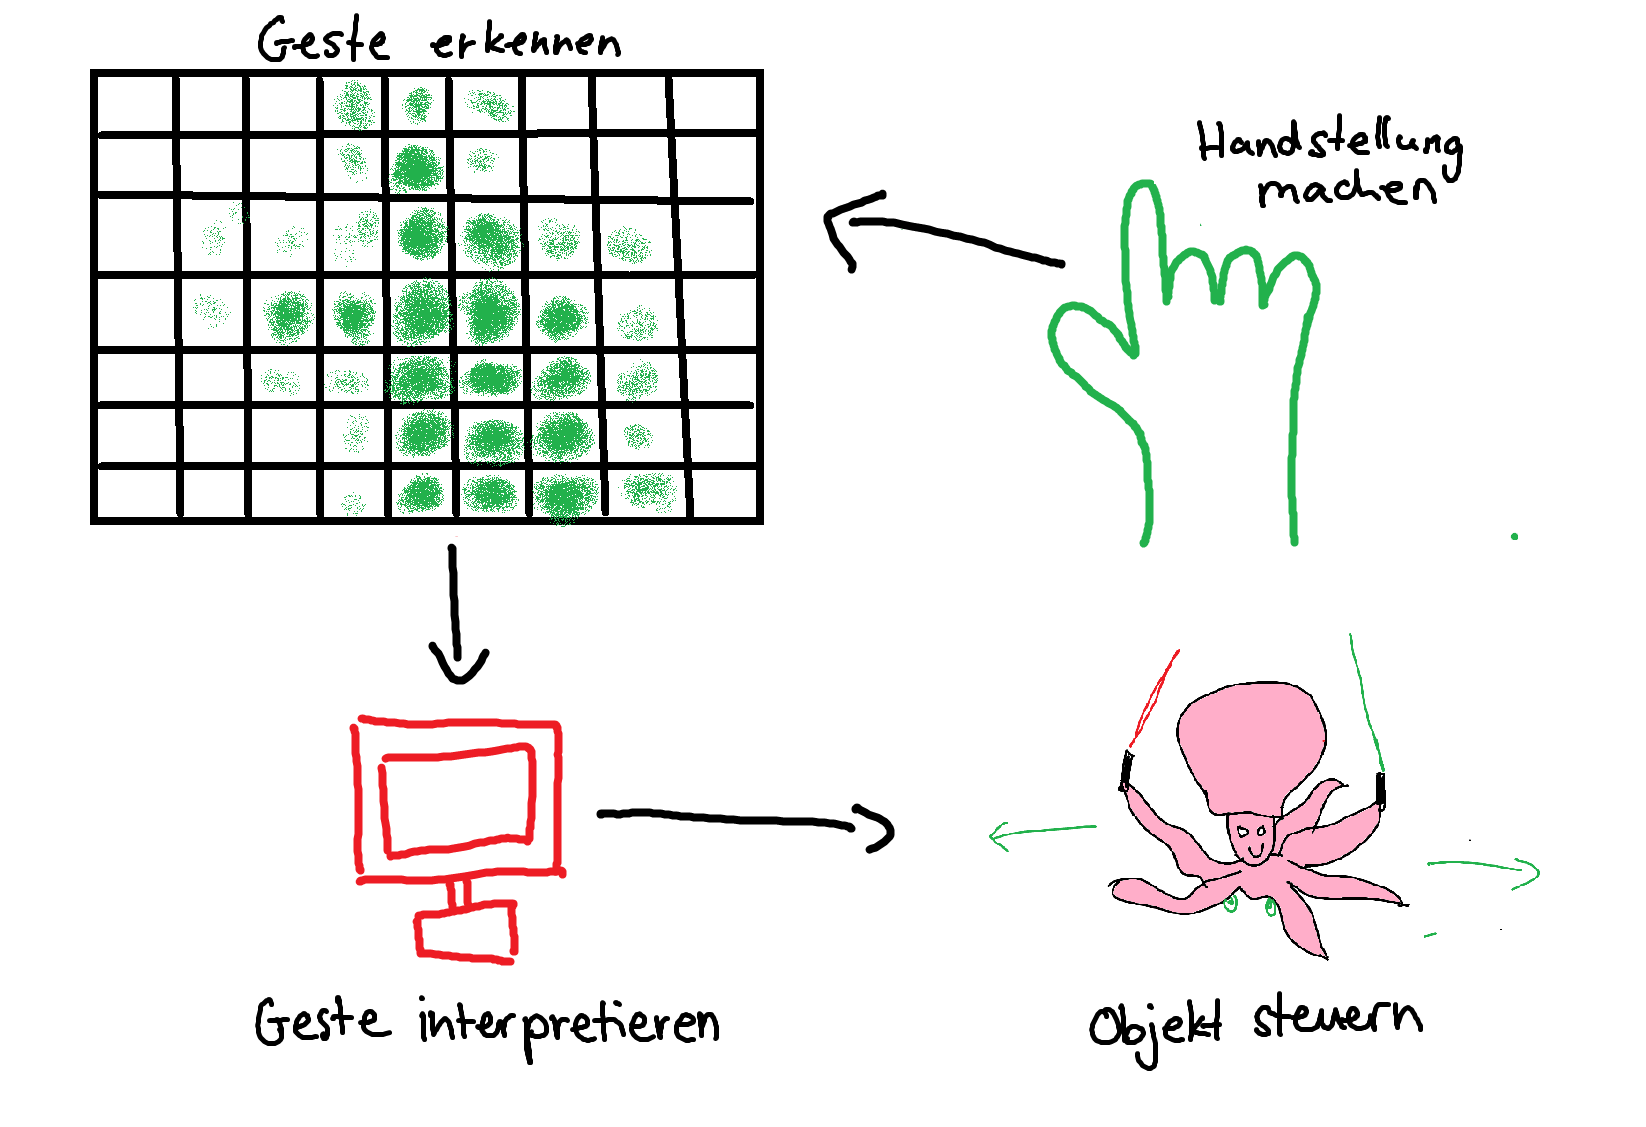 Geste erkennen
Handstellung
machen
Geste interpretieren
Objekt steuern